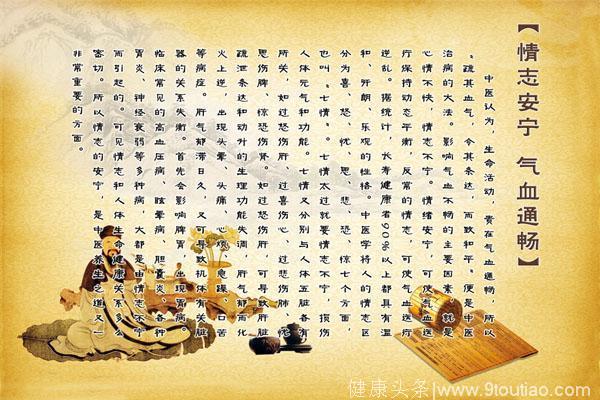 【情志安宁 气血通畅】
中医认为，生命活动，贵在气血通畅，所以
“疏其血气，令其条达，而致和平”便是中医
治病的大法。影响气血不畅的主要因素，就是
心情不快，情志不宁。情绪安宁，可使气血医
疗保持动态平衡，反常的情志，可使气血医疗
逆乱。据统计，长寿健康者90%以上都具有温
和、开朗、乐观的性格。中医学将人的情志区
分为喜、怒、忧、思、悲、恐、惊七个方面，
也叫“七情”。七情太过就要情志不宁，损伤
人体元气和功能。七情又分别与人体五脏各有
所关，如过怒伤肝、过喜伤心、过悲伤肺、忧
思伤脾、惊恐伤肾。如过怒伤肝，可导致肝脏
疏泄条达和动升的生理功能失调，肝气郁而化
火上逆，出现头晕、头痛、心烦、急躁、口苦
等病症。肝气郁滞日久，又可导致机体有关脏
器的关系失衡。首先会影响脾胃，出现胃病。
临床常见的高血压病、眩晕病、胆囊炎、各种
胃炎、神经衰弱等多种病，大都是由情志不宁
而引起的。可见情志和人体生命健康关系多么
密切。所以情志的安宁，是中医养生之道又一
非常重要的方面。
健康头条|www.9toutiao.com